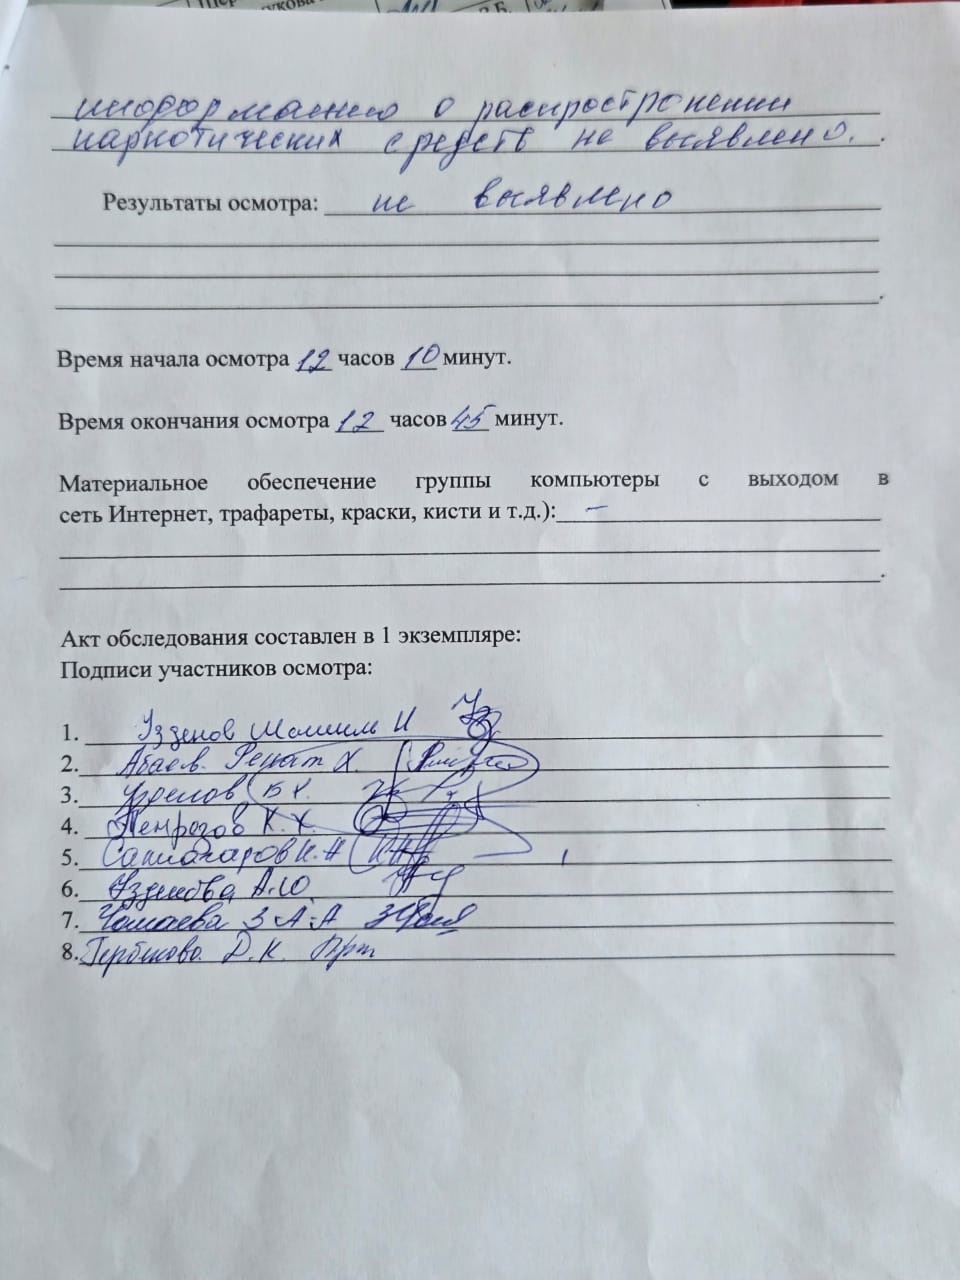 информацию о распростронении
наркотических средств не выявлено.
Результаты осмотра: не выявлено
Время начала осмотра 12 часов 10 минут.
Время окончания осмотра 12 часов 45 минут.
Материальное обеспечение группы компьютеры с выходом в
сеть Интернет, трафареты, краски, кисти и т.д.): –
Акт обследования составлен в 1 экземпляре:
Подписи участников осмотра:
1. Узденов Шамиль И
2. Абаев Ренат Х.
3. Узденов Б Х.
4. К. Х.
5.
6. Узденова А.Ю.
7. Чомаева З А-А
8. Гербекова Д.К.